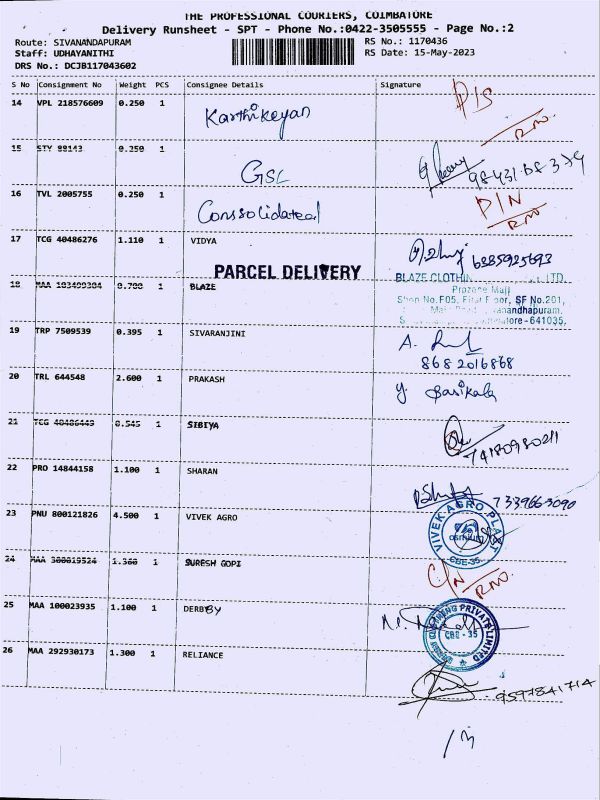 THE PROFESSIONAL COURIERS, COIMBATORE
Delivery Runsheet - SPT - Phone No.:0422-3505555 - Page No.:2
Route: SIVANANDAPURAM RS No.: 1170436
Staff: UDHAYANITHI RS Date: 15-May-2023
DRS No.: DCJB117043602
S No Consignment No Weight PCS Consignee Details Signature
14 VPL 218576609 0.250 1 Karthikeyan
15 STY 88143 0.250 1 GSL
16 TVL 2005755 0.250 1 Conssolidateal
17 TCG 40486276 1.110 1 VIDYA 6385925693
PARCEL DELIVERY
18 MAA 1 BLAZE BLAZE CLOTHIN LTD
Prozone Mall
Shop No.F05, First Floor, SF No.201,
19 TRP 7509539 0.395 1 SIVARANJINI
8682016868
20 TRL 644548 2.600 1 PRAKASH
21 TCG 40486449 0.545 1 SIBIYA
7418098021
22 PRO 14844158 1.100 1 SHARAN 7339663090
23 PNU 800121826 4.500 1 VIVEK AGRO VIVEK AGRO PLAST
CBE-35
24 MAA 300019524 1.360 1 SURESH GOPI C/N
RNO
25 MAA 100023935 1.100 1 DERBBY
CBE - 35
PRIVATE LIMITED
26 MAA 292930173 1.300 1 RELIANCE
9597841714